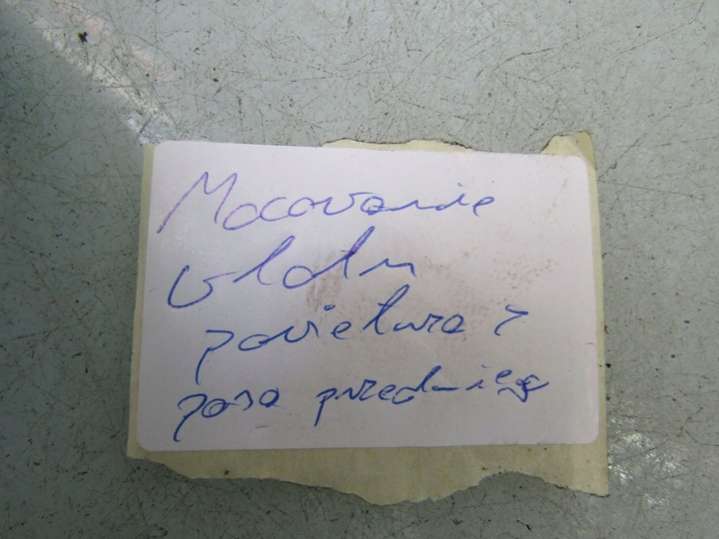 Mocowanie
wlotu
powietrza z
pasa przedniego